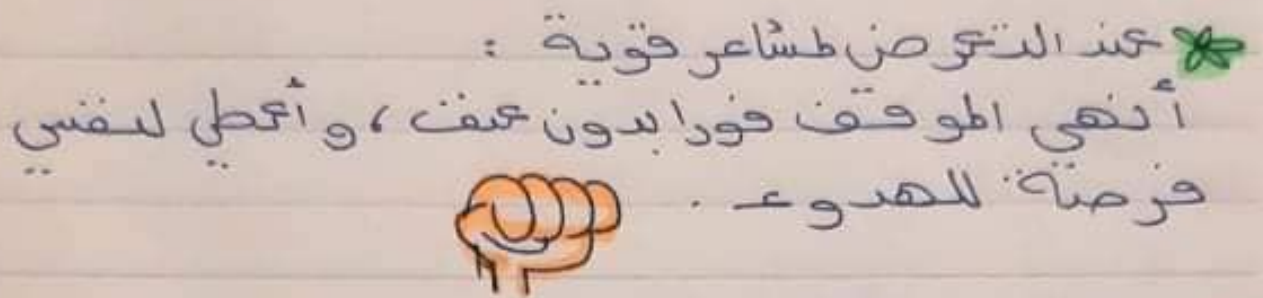 عند التعرض لمشاعر قوية :
أنهي الموقف فورا بدون عنف ، و أعطي لنفسي
فرصة للهدوء .